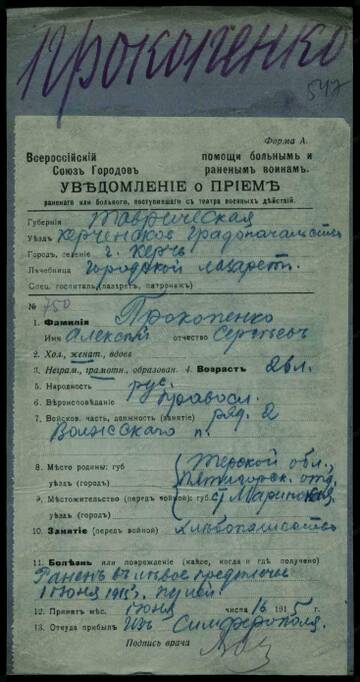 Прокопенко
547
Форма А.
Всероссійскій помощи больнымъ и
Союзъ Городовъ раненымъ воинамъ.
УВѢДОМЛЕНІЕ о ПРІЕМѢ
раненаго или больного, поступившаго съ театра военныхъ дѣйствій.
Губернія Таврическая
Уѣздъ Керченское Градоначальство
Городъ, селеніе г. Керчь
Лѣчебница Городской лазаретъ.
Спец. госпиталь (лазретъ, патронажъ)
№ 750
1. Фамилія Прокопенко
Имя Алексѣй отчество Сергѣевъ
2. Хол., женат., вдовъ
3. Неграм., грамотн., образован. 4. Возрастъ 26 л.
5. Народность рус.
6. Вѣроисповѣданіе Правосл.
7. Войсков. часть, должность (занятіе) ряд. 2
Волжскаго п.
8. Мѣсто родины: губ. Терской обл.,
уѣздъ (городъ) Пятигорск. отд.
9. Мѣстожительство (передъ войной): губ. с. Маринская
уѣздъ (городъ)
10. Занятіе (передъ войной) хлѣбопашество
11. Болѣзнь или поврежденіе (какое, когда и гдѣ получено)
Раненъ въ лѣвое предплечье
1 Іюня 1915 г. пулей.
12. Принятъ мѣс. Іюня числа 16 1915 г.
13. Откуда прибылъ Изъ Симферополя.
Подпись врача